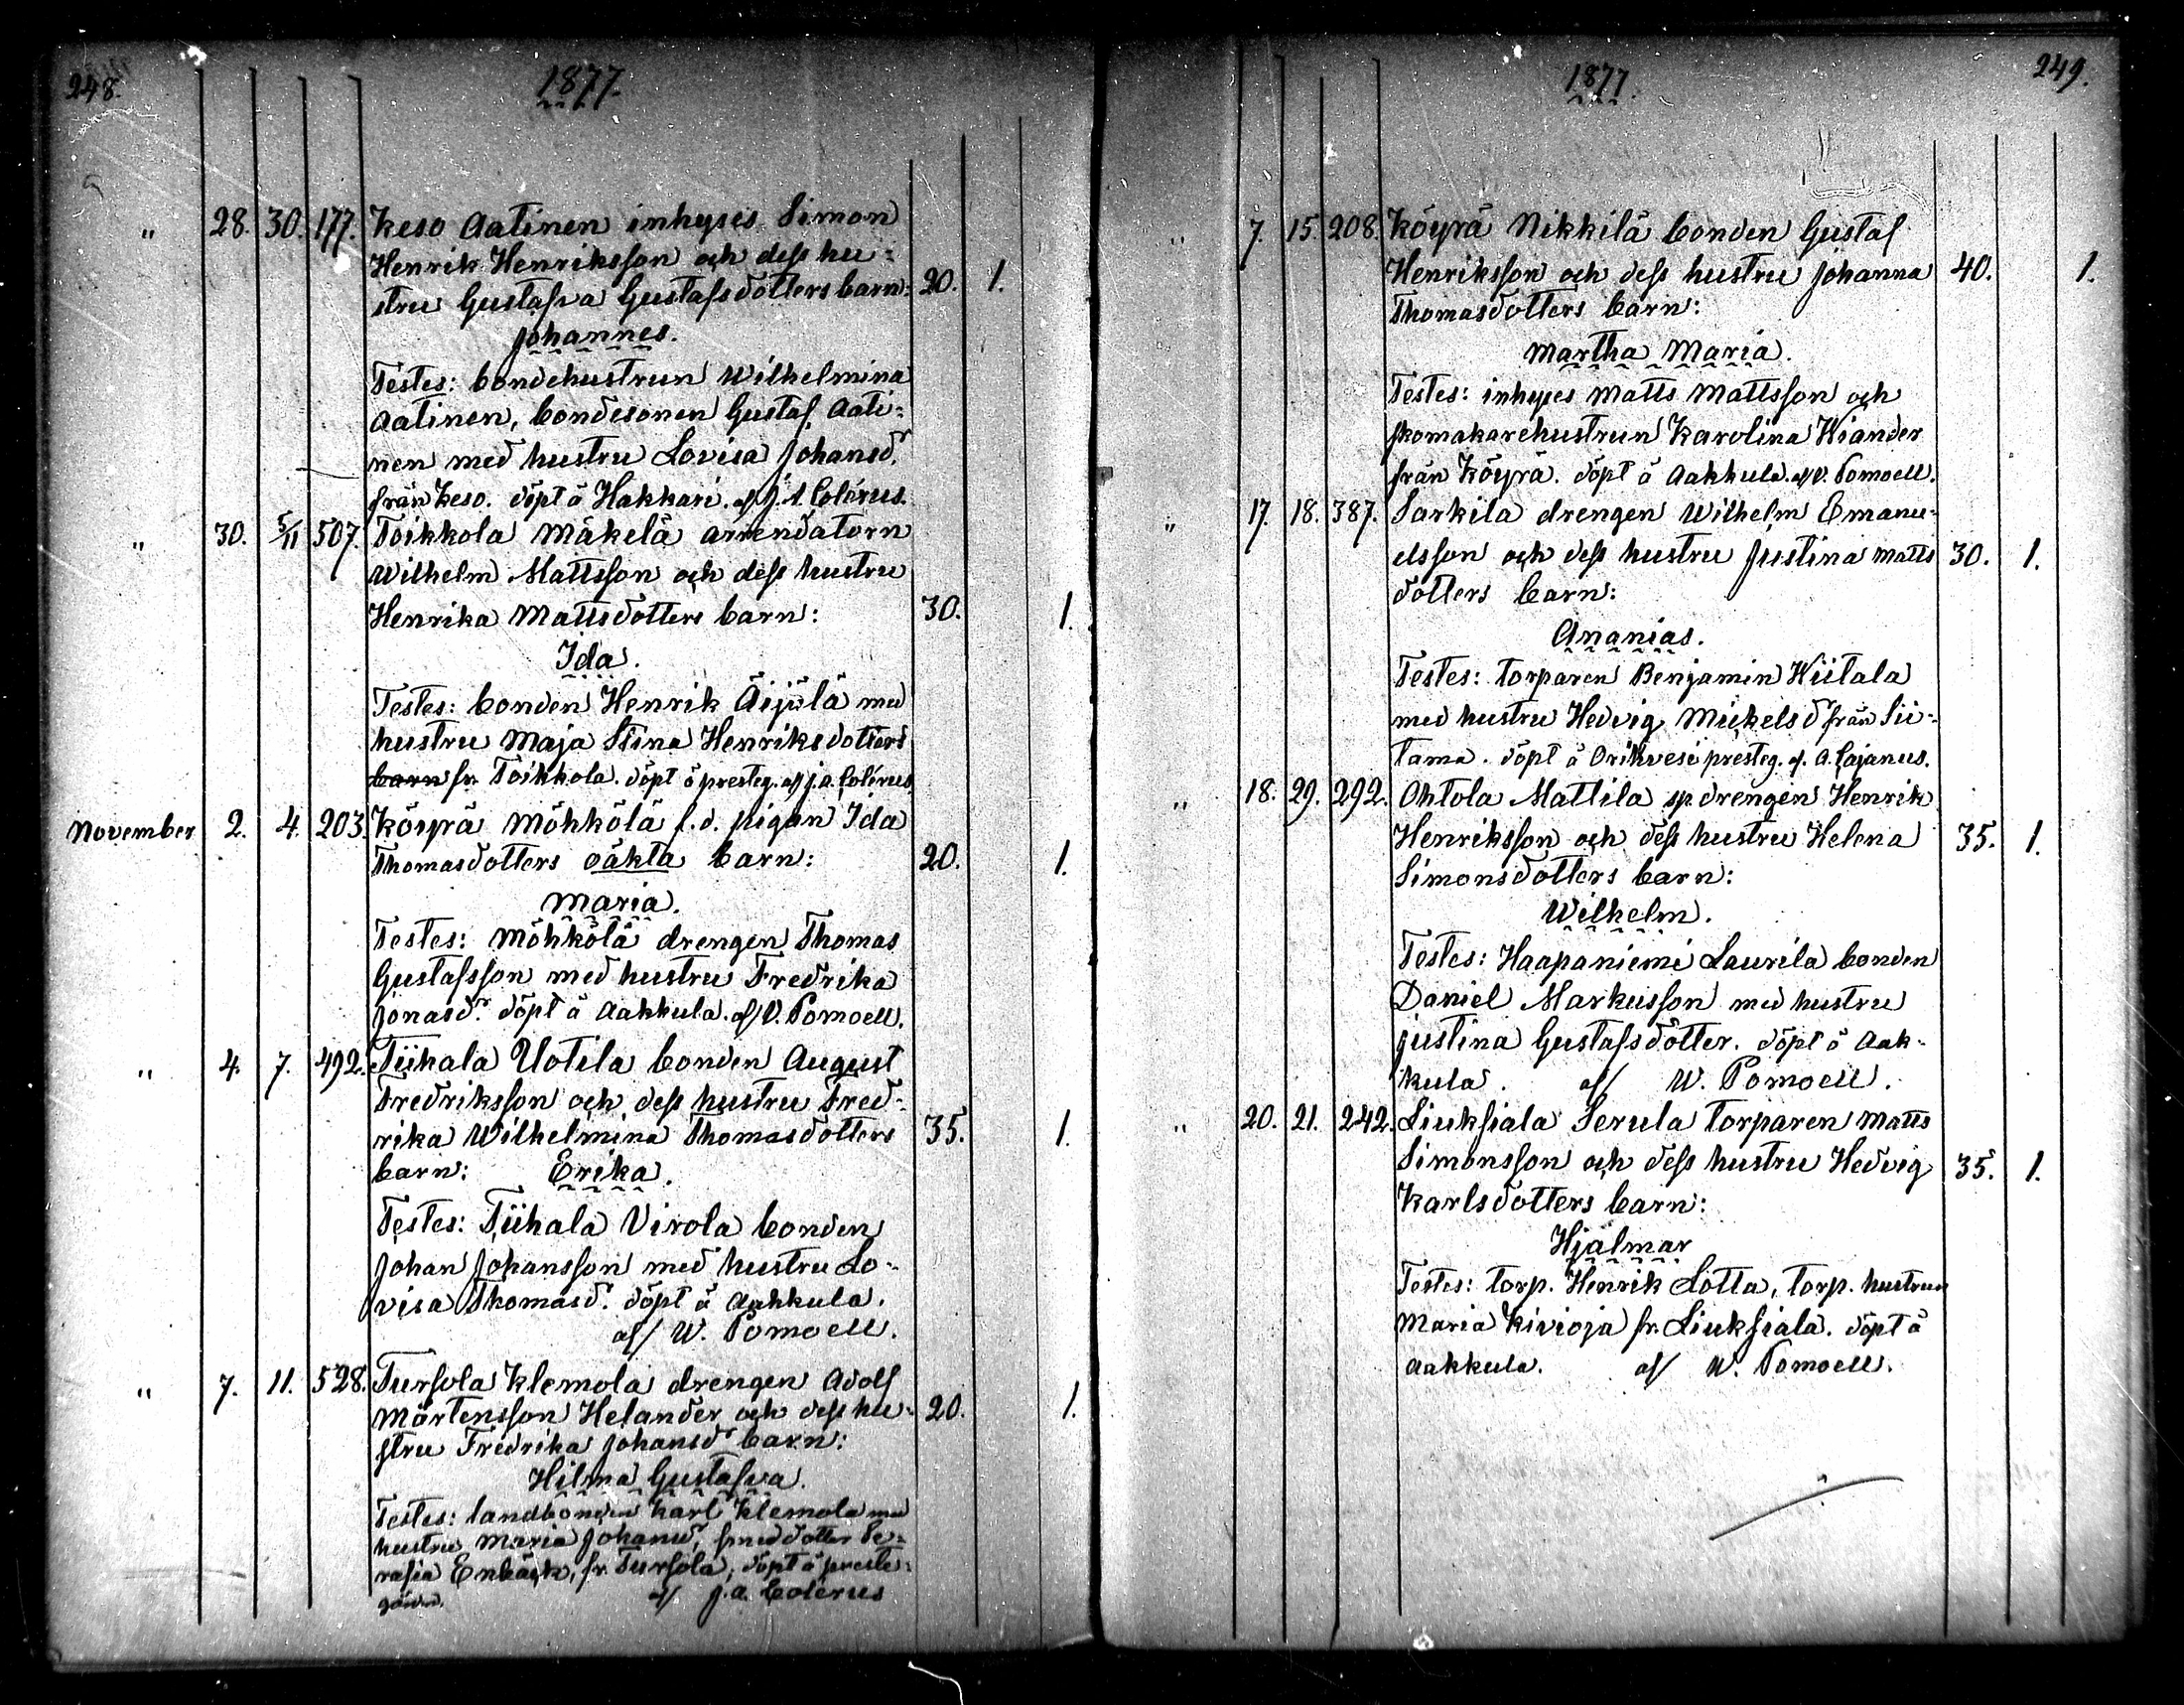 248.
1877.
" 28. 30. 177. Keso Aatinen inhyses Simon
Henrik Henriksson och dess hu-
stru Gustafva Gustafsdotters barn: 20. 1.
Johannes.
Testes: bondehustrun Wilhelmina
Aatinen, bondesonen Gustaf Aati-
nen med hustru Lovisa Johansd.
från Keso. döpt å Hakkari. af J. A. Colérus.
" 30. 5/11 507. Toikkola Mäkelä arrendatorn
Wilhelm Mattsson och dess hustru
Henrika Mattsdotters barn: 30. 1.
Ida.
Testes: bonden Henrik Äijälä med
hustru Maja Stina Henriksdotters
barn fr. Toikkola. döpt å presteg. af J. A. Colérus
November 2. 4. 203. Köyrä Möhkölä f.d. pigan Ida
Thomasdotters oäkta barn: 20. 1.
Maria.
Testes: Möhkölä drengen Thomas
Gustafsson med hustru Fredrika
Jonasd. döpt å Aakkula. af V. Pomoell.
" 4. 7. 492. Tiihala Uotila bonden August
Fredriksson och dess hustru Fred-
rika Wilhelmina Thomasdotters 35. 1.
barn: Erika.
Testes: Tiihala Virola bonden
Johan Johansson med hustru Lo-
visa Thomasd. döpt å Aakkula.
af W. Pomoell.
" 7. 11. 528. Tursola Klemola drengen Adolf
Mårtensson Helander och dess hu- 20. 1.
stru Fredrika Johansd barn:
Hilma Gustafva.
Testes: landbonden Karl Klemola med
hustru Maria Johansd, smeddotter Se-
rafia Enbäck, fr. Tursola, döpt å preste-
gården. af J. A. Colérus
249.
1877.
" 7. 15. 208. Köyrä Nikkilä bonden Gustaf
Henriksson och dess hustru Johanna 40. 1.
Thomasdotters barn:
Martha Maria.
Testes: inhyses Matts Mattsson och
skomakarehustrun Karolina Kiander
från Köyrä. döpt å Aakkula. af V. Pomoell.
" 17. 18. 387. Sarkila drengen Wilhelm Emanu-
elsson och dess hustru Justina Matts 30. 1.
dotters barn:
Ananias.
Testes: torparen Benjamin Wiitala
med hustru Hedvig Mickelsd från Sii-
tama. döpt å Orihvesi presteg. af A. Cajanus.
" 18. 29. 292. Ohtola Mattila sp. drengen Henrik
Henriksson och dess hustru Helena 35. 1.
Simonsdotters barn:
Wilhelm.
Testes: Haapaniemi Laurila bonden
Daniel Markusson med hustru
Justina Gustafsdotter. döpt å Aak-
kula. af W. Pomoell.
" 20. 21. 242. Liuksiala Serula torparen Matts
Simonsson och dess hustru Hedvig 35. 1.
Karlsdotters barn:
Hjalmar
Testes: torp. Henrik Lotta, torp. hustrun
Maria Kivioja fr. Liuksiala. döpt å
Aakkula. af W. Pomoell.